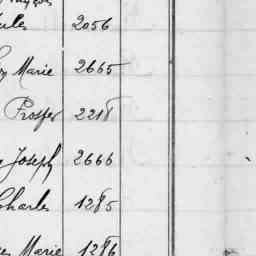 Jules 2056
Marie 2665
Prosper 2218
Joseph 2666
Charles 1285
Marie 1286